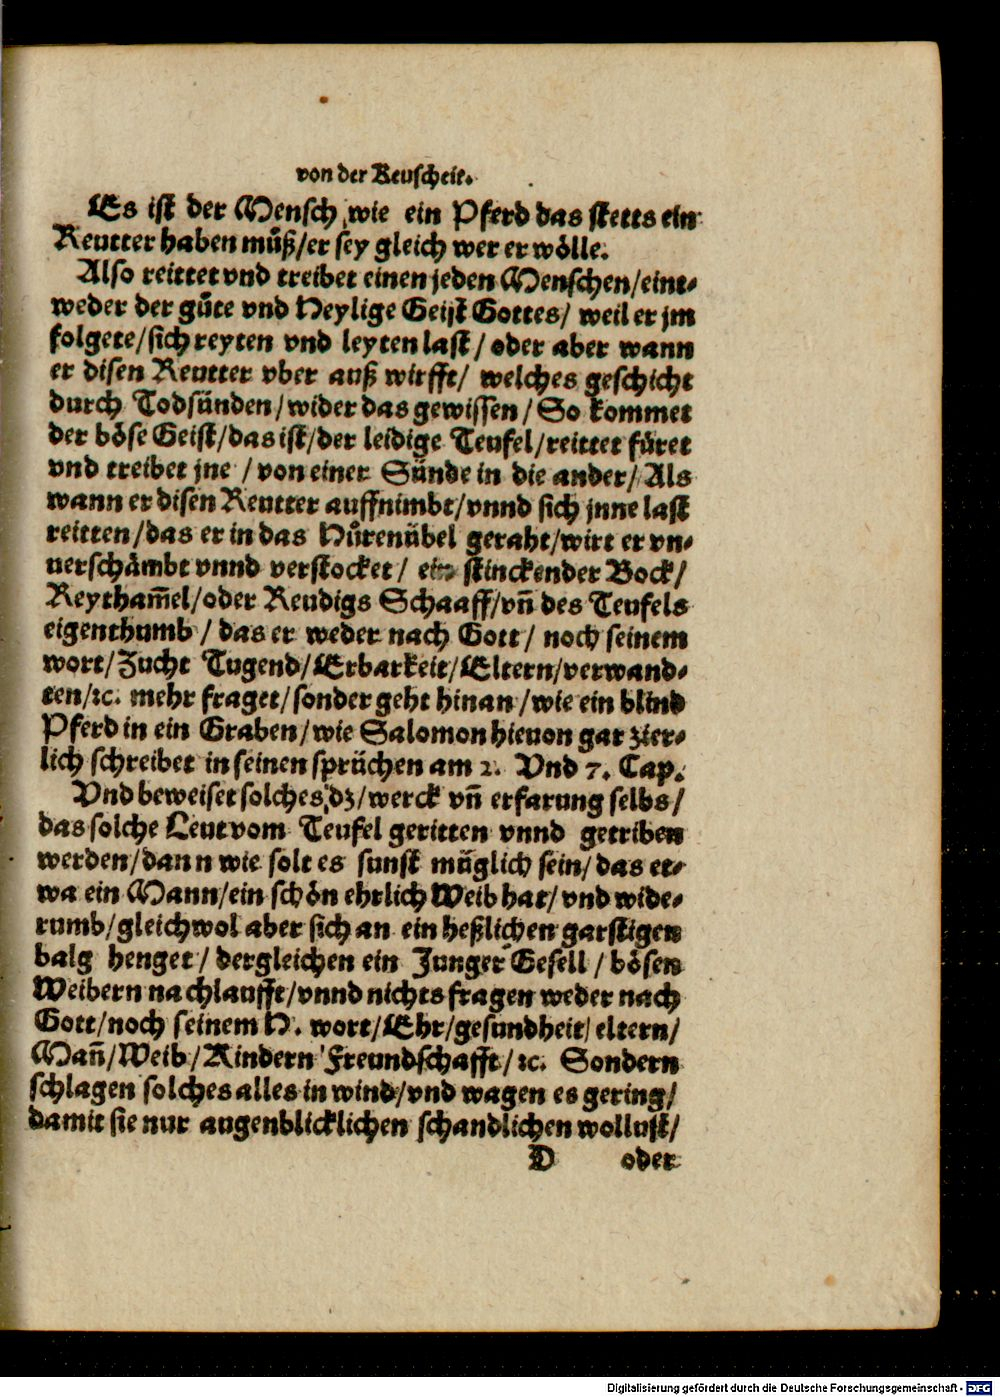 von der Keuscheit.
Es ist der Mensch wie ein Pferd das stetts ein
Reutter haben můß/er sey gleich wer er wölle.
Also reittet vnd treibet einen jeden Menschen/eint-
weder der gůte vnd Heylige Geist Gottes/ weil er jm
folgete/sich reyten vnd leyten last/ oder aber wann
er disen Reutter vber auß wirfft/ welches geschicht
durch Todsünden/wider das gewissen/So kommet
der böse Geist/das ist/der leidige Teufel/reittet füret
vnd treibet jne /von einer Sünde in die ander/ Als
wann er disen Reutter auffnimbt/vnnd sich jnne last
reitten/das er in das Hůrenübel geraht/wirt er vn-
uerschämbt vnnd verstocket/ ein stinckender Bock/
Reytham̃el/oder Reudigs Schaaff/vñ des Teufels
eigenthumb/ das er weder nach Gott/ noch seinem
wort/Zucht Tugend/Erbarkeit/Eltern/verwand-
ten/ꝛc. mehr fraget/sonder geht hinan/wie ein blind
Pferd in ein Graben/wie Salomon hieuon gar zier-
lich schreibet in seinen sprüchen am 2. Vnd 7. Cap.
Vnd beweiset solches dz/werck vñ erfarung selbs/
das solche Leut vom Teufel geritten vnnd getriben
werden/dann wie solt es sunst müglich sein/das et-
wa ein Mann/ein schön ehrlich Weib hat/vnd wide-
rumb/gleichwol aber sich an ein heßlichen garstigen
balg henget/ dergleichen ein Junger Gesell/ bösen
Weibern nachlaufft/vnnd nichts fragen weder nach
Gott/noch seinem H. wort/Ehr/gesundheit/eltern/
Mañ/Weib/Kindern Freundschafft/ꝛc. Sondern
schlagen solches alles in wind/vnd wagen es gering/
damit sie nur augenblicklichen schandlichen wollust/
D oder
Digitalisierung gefördert durch die Deutsche Forschungsgemeinschaft - DFG